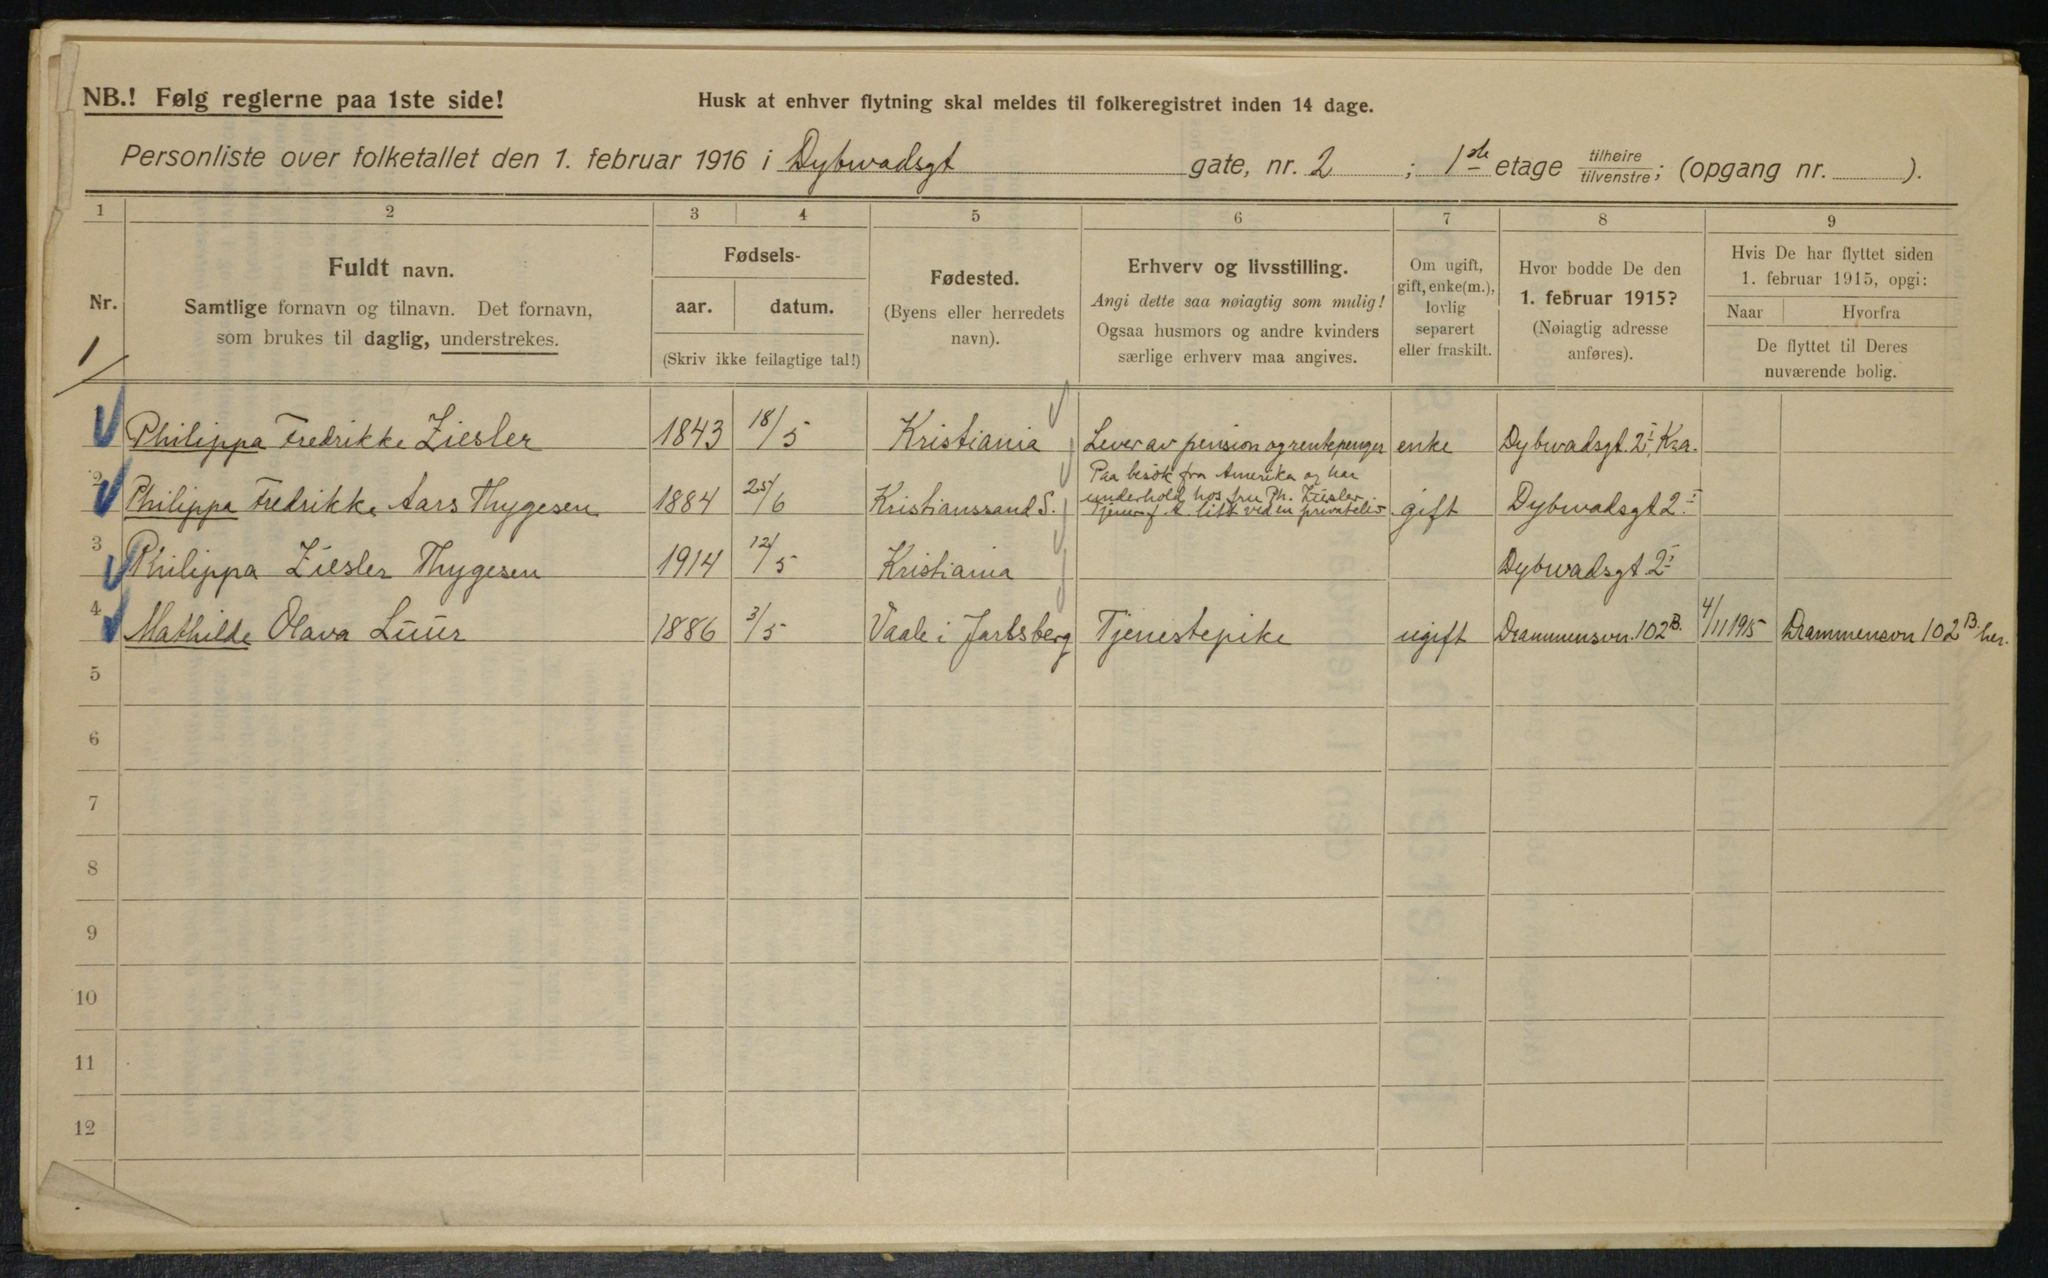 NB.! Følg reglerne paa 1ste side!
Husk at enhver flytning skal meldes til folkeregistret inden 14 dage.
Personliste over folketallet den 1. februar 1916 i Dybwadsgt gate, nr. 2 ; 1ste etage tilhøire tilvenstre; (opgang nr. ).
1 2 3 4 5 6 7 8 9
Nr.
Fuldt navn.
Samtlige fornavn og tilnavn. Det fornavn,
som brukes til daglig, understrekes.
Fødsels-
aar. datum.
(Skriv ikke feilagtige tal!)
Fødested.
(Byens eller herredets
navn).
Erhverv og livsstilling.
Angi dette saa nøiagtig som mulig!
Ogsaa husmors og andre kvinders
særlige erhverv maa angives.
Om ugift,
gift, enke(m.),
lovlig
separert
eller fraskilt.
Hvor bodde De den
1. februar 1915?
(Nøiagtig adresse
anføres).
Hvis De har flyttet siden
1. februar 1915, opgi:
Naar Hvorfra
De flyttet til Deres
nuværende bolig.
1
Philippa Fredrikke Ziesler 1843 18/5 Kristiania Lever av pension og rentepenger enke Dybwadsgt. 2 I, Kra.
2 Philippa Fredrikke Aars Thygesen 1884 25/6 Kristianssand S. Paa besøk fra Amerika og har
underhold hos fru Ph. Ziesler
litt ved en gift Dybwadsgt 2 I
3 Philippa Ziesler Thygesen 1914 12/5 Kristiania Dybwadsgt. 2 I
4 Mathilde Olava Luur 1886 3/5 Vaale i Jarlsberg Tjenestepike ugift Drammensvn. 102 B. 4/11 1915 Drammensvn 102 B. her.
5
6
7
8
9
10
11
12